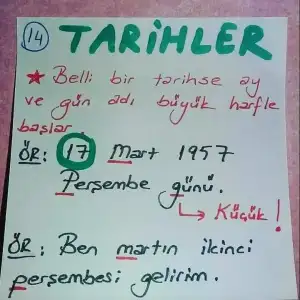 14 TARİHLER
★ Belli bir tarihse ay
ve gün adı büyük harfle
başlar
ÖR: 17 Mart 1957
Perşembe günü.
↳ Küçük!
ÖR: Ben martın ikinci
perşembesi gelirim.